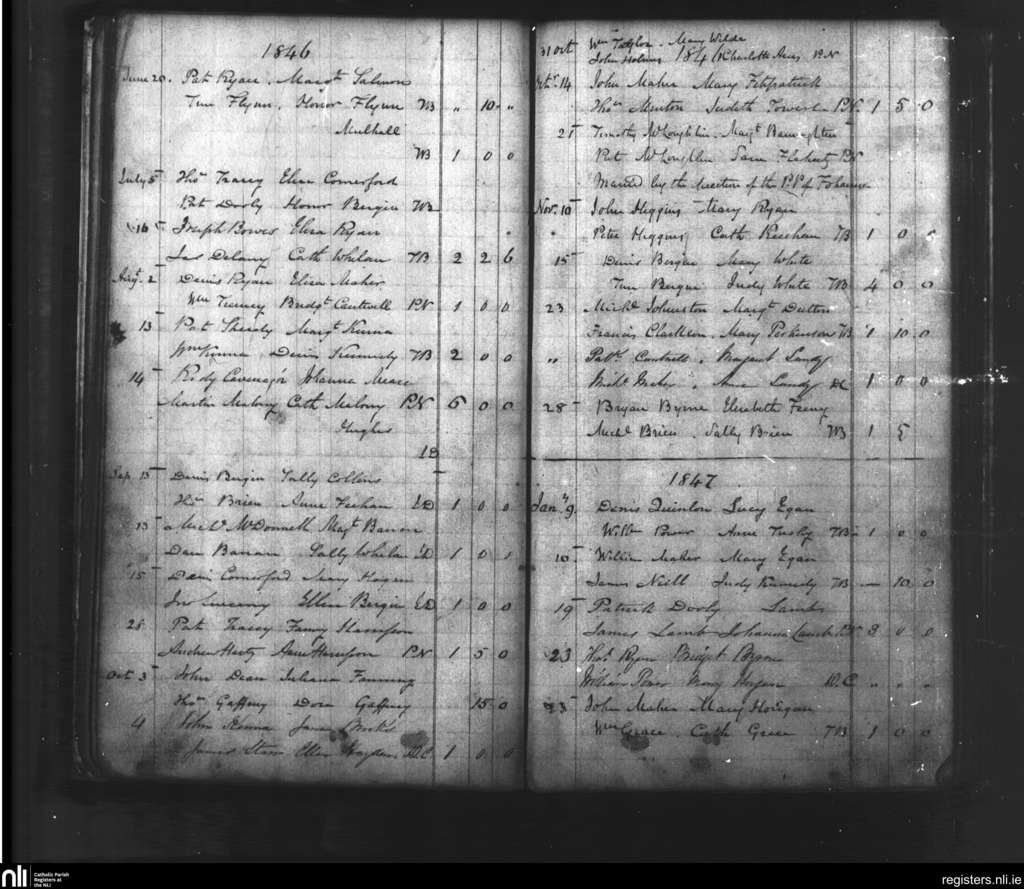 1846
June 20. Pat Ryan. Margt. Salmon
Tim Flynn. Honor Flynn WB " 10 "
Mulhall
WB 1 0 0
July 5 Thos. Tracey Eliza Comerford
Pat Dooly Honor Bergin WB
16 Joseph Bowes Eliza Ryan
Jas Delany Cath Whelan WB 2 2 6
Augt. 2 Denis Ryan Eliza Maher
Wm Tierney Bridgt. Cantwell PN 1 0 0
13 Pat Margt. Kenna
Wm Kenna Denis Kennedy WB 2 0 0
14 Johanna Meara
Martin Malony Cath Malony PN 5 0 0
Hughes
Sep 13 Denis Bergin Sally Collins
Thos. Brien Anne ED 1 0 0
13 Michl. McDonnell Margt Banan
Dan Banan Sally Whelan ED 1 0
15 Denis Comerford Mary Hogan
Ellen Bergin ED 1 0 0
28 Pat Tracey Fanny Thompson
Andrew Anne Thompson PN 1 5 0
Oct 3 John Dean Juliana Fanning
Thos. Gaffney Dora Gaffney 15 0
4 John Kenna Jane
James Ellen D.C. 1 0 0
31 Oct Wm Taylor. Mary Wilde
John Holmes 1846 Charlotte PN
Octr. 14 John Maher Mary Fitzpatrick
Thos. Minton Judith PN. 1 5 0
21 Timothy McLoughlin. Margt
Pat McLoughlin PN
Married by the direction of the P.P. of
Nov. 10 John Higgins Mary Ryan
" Peter Higgins Cath WB 1 0
15 Denis Bergin Mary White
Tim Bergin Judy White WB 4 0 0
23 Michl. Johnston Margt Dutton
Francis Clarkson. Mary Parkinson WB 1 10 0
" Patk. Cantwell. Margaret Landy
Michl. Maher. Anne Landy DC 1 0 0
28 Bryan Byrne Elizabeth Feeny
Michl. Brien. Sally Brien WB 1 5
1847
Jany. 9. Denis Quinlan Lucy Egan
Power Anne WB 1 0 0
10. William Maher Mary Egan
James Neill Judy Kennedy WB — 10 0
19 Patrick Dooly Lamb
James Lamb Johanna Lamb PN 3 0 0
23 Thos. Ryan Bridget Byrne
William Power Mary D.C " " "
23 John Maher Mary Horigan
Wm Grace. Cath Grace WB 1 0 0
nli Catholic Parish
Registers at
the NLI
registers.nli.ie